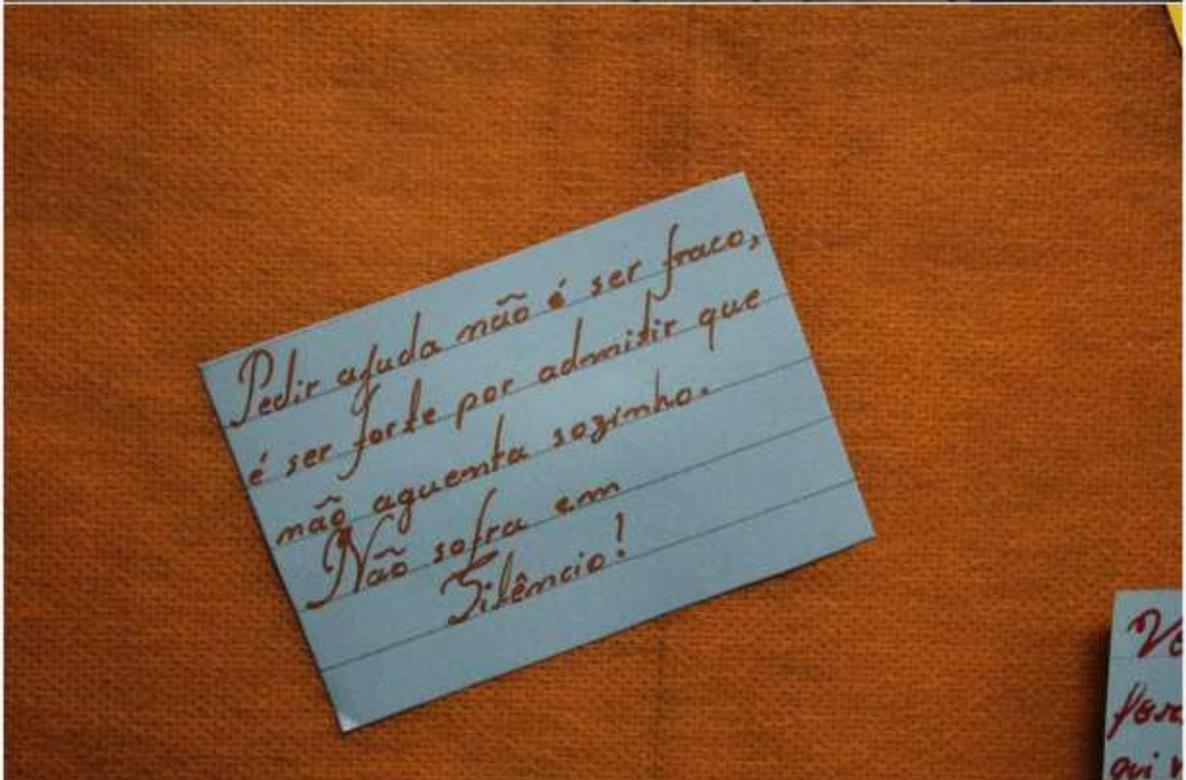 Pedir ajuda não é ser fraco,
é ser forte por admitir que
não aguenta sozinho.
Não sofra em
Silêncio!